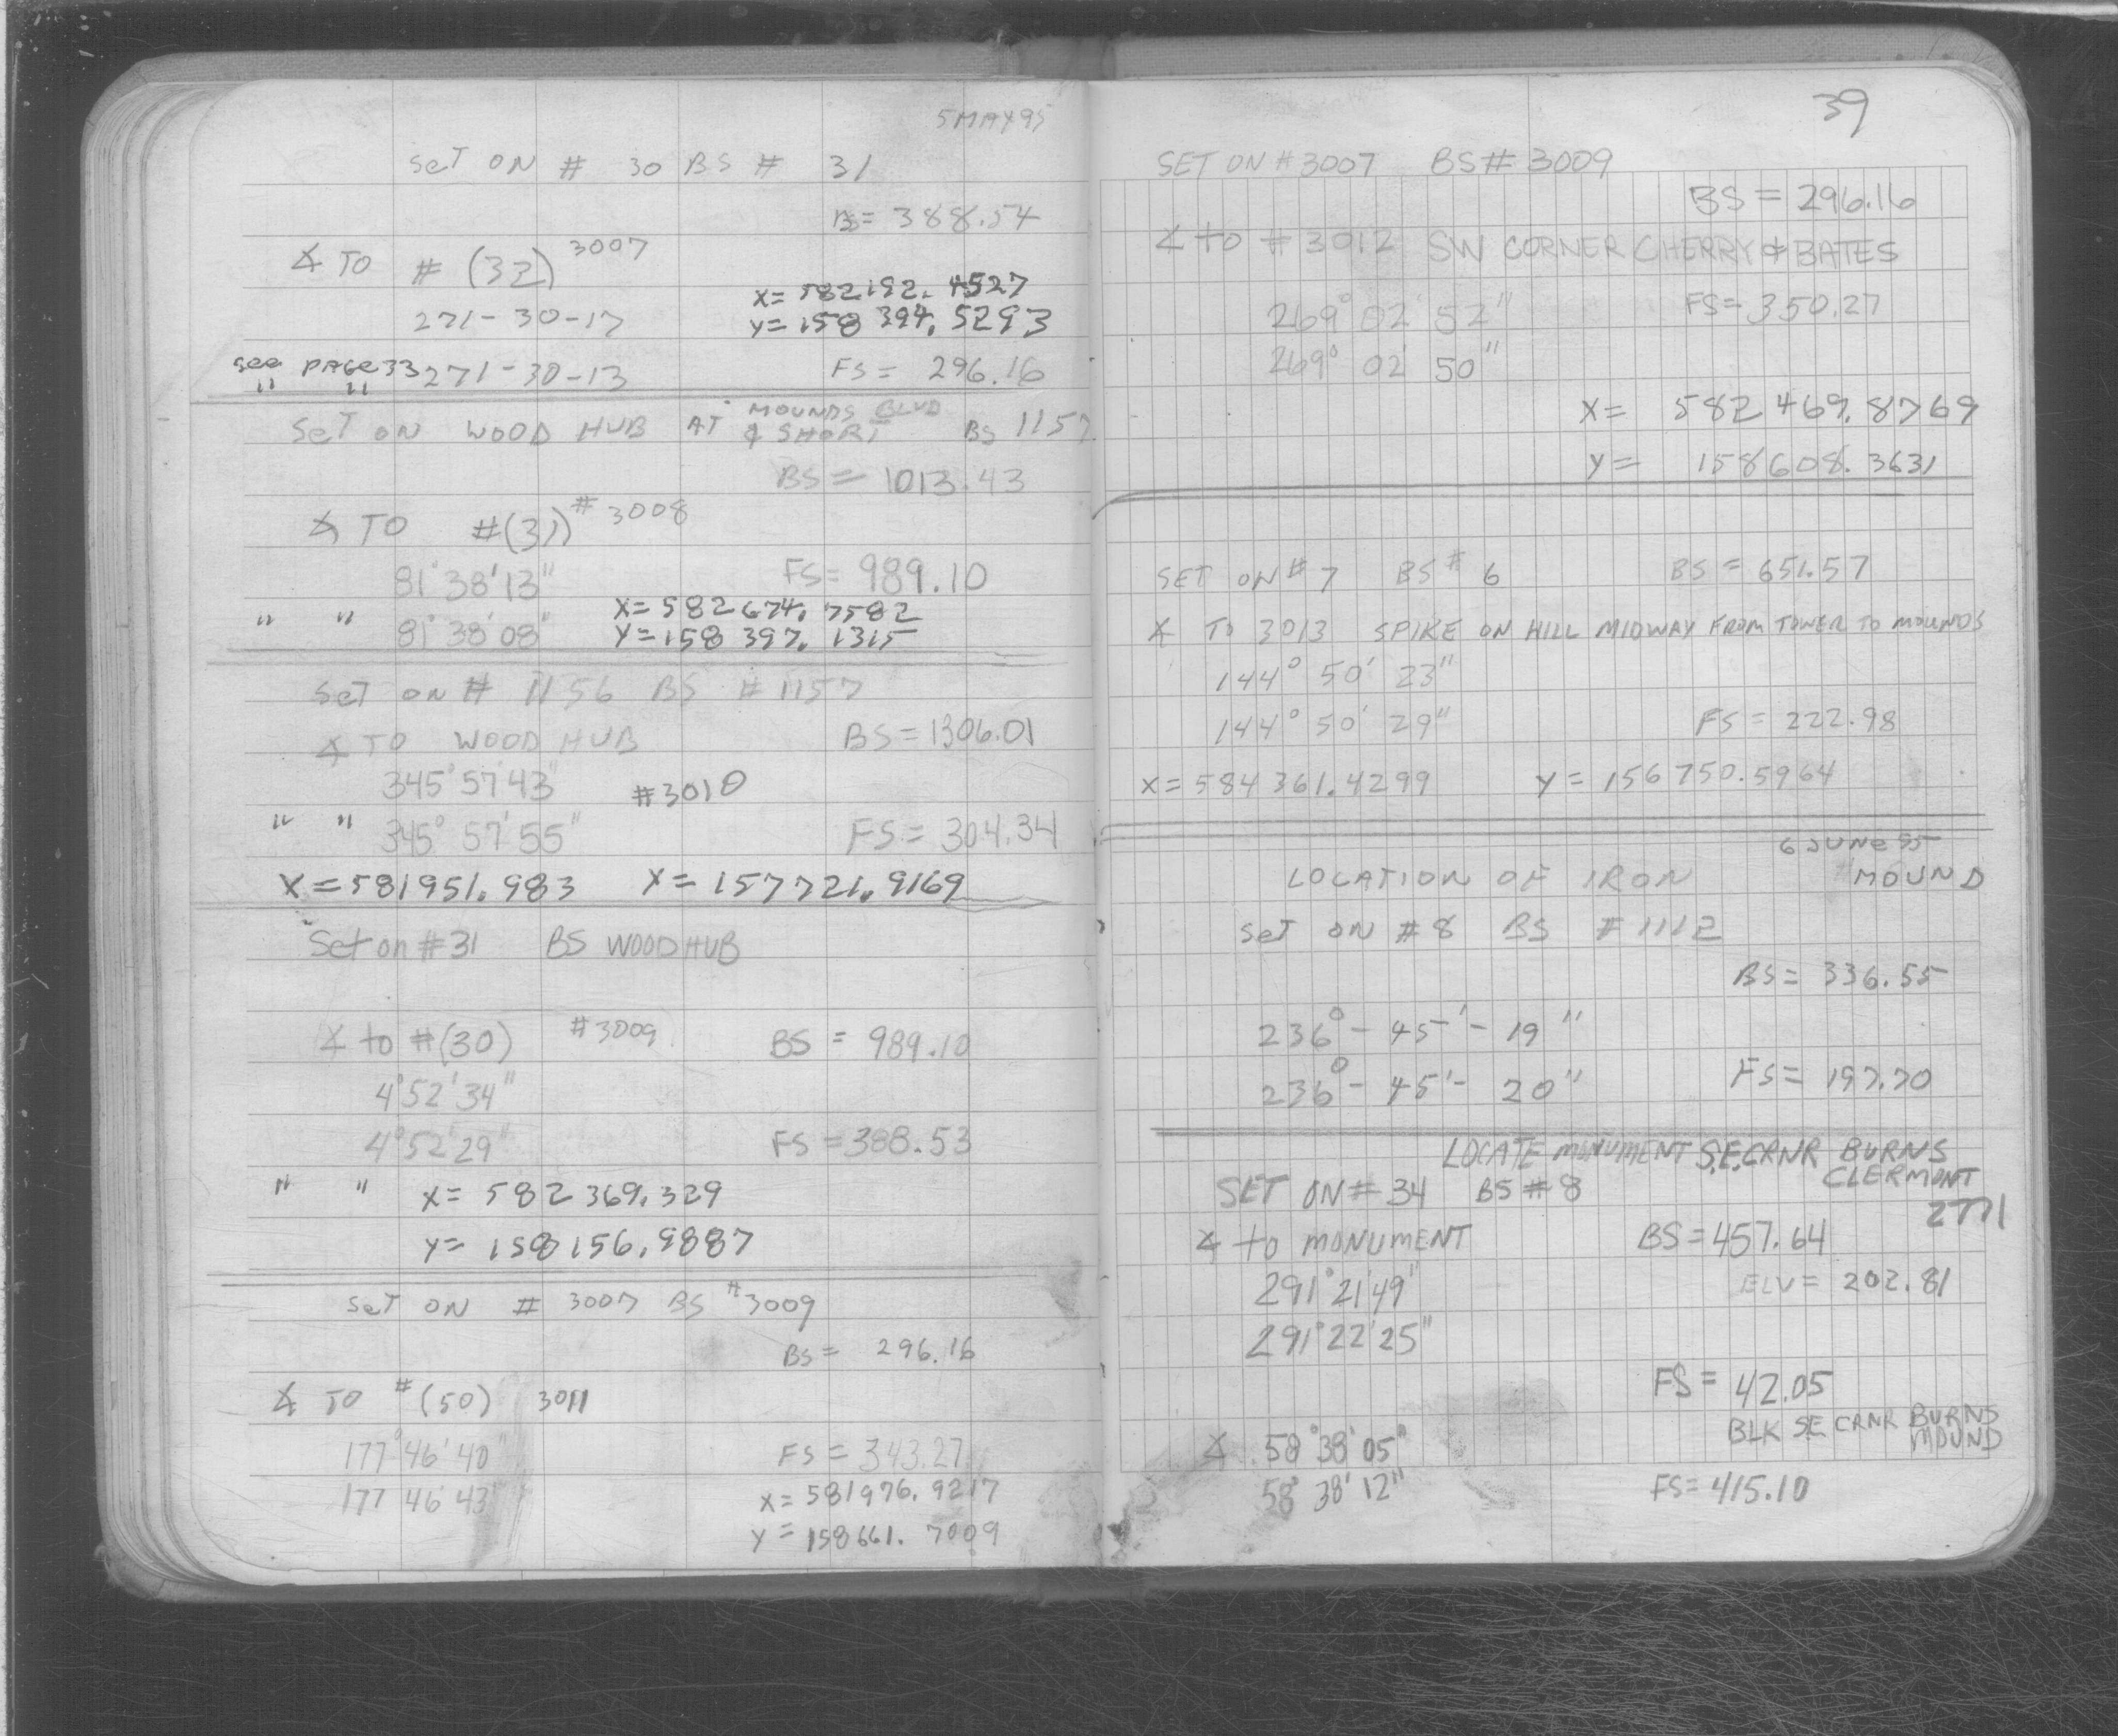 5 MAY 95
SeT ON # 30 BS # 31
BS = 388.54
∡ TO # (32) 3007
X= 582192. 4527
271-30-17
Y= 158 394. 5293
see PAGe 33 271-30-13 FS = 296.16
" "
SeT ON WOOD HUB AT MOUNDS BLVD & SHORT BS 1157
BS = 1013.43
∡ TO #(31) # 3008
81° 38' 13" FS= 989.10
X= 582 674. 7582
" " 81° 38' 08"
Y= 158 397. 1315
SeT ON # 1156 BS # 1157
∡ TO WOOD HUB BS = 1306.01
345° 57' 43" #3010
" " 345° 57' 55" FS = 304.34
X = 581951. 983 X = 157721. 9169
Set on # 31 BS WOOD HUB
∡ to #(30) #3009 BS = 989.10
4° 52' 34"
4° 52' 29" FS = 388.53
" " X= 582 369. 329
Y= 158 156. 9887
SeT ON # 3007 BS #3009
BS = 296.16
∡ TO # (50) 3011
177° 46' 40" FS = 343.27
177 46' 43" X= 581976. 9217
Y = 158661. 7009
39
SET ON # 3007 BS # 3009
BS = 296.16
∡ to # 3012 SW CORNER CHERRY & BATES
269° 02' 52" FS = 350.27
269° 02' 50"
X= 582 469. 8769
Y= 158608. 3631
SET ON # 7 BS # 6 BS = 651.57
∡ TO 3013 SPIKE ON HILL MIDWAY FROM TOWER TO MOUNDS
144° 50' 23"
144° 50' 29" FS = 222.98
X = 584 361. 4299 Y = 156 750. 5964
6 JUNe 95
LOCATION OF IRON # MOUND
SeT ON # 8 BS # 1112
BS = 336.55
236° - 45' - 19"
236° - 45' - 20" FS = 197.70
LOCATE MONUMENT S.E. CRNR BURNS
CLERMONT
SET ON # 34 BS # 8
2771
∡ to MONUMENT BS = 457.64
291° 21' 49" ELV = 202.81
291° 22' 25"
FS = 42.05
BLK SE CRNR BURNS
MOUND
∡ 58° 38' 05"
58° 38' 12" FS = 415.10